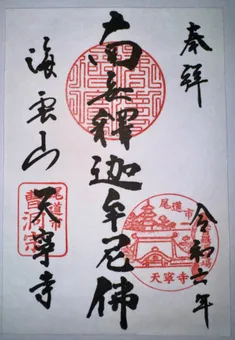 奉拜
令和六年
南無釋迦牟尼佛
海雲山
天寧寺
尾道市
曹洞宗
尾道市
天寧寺